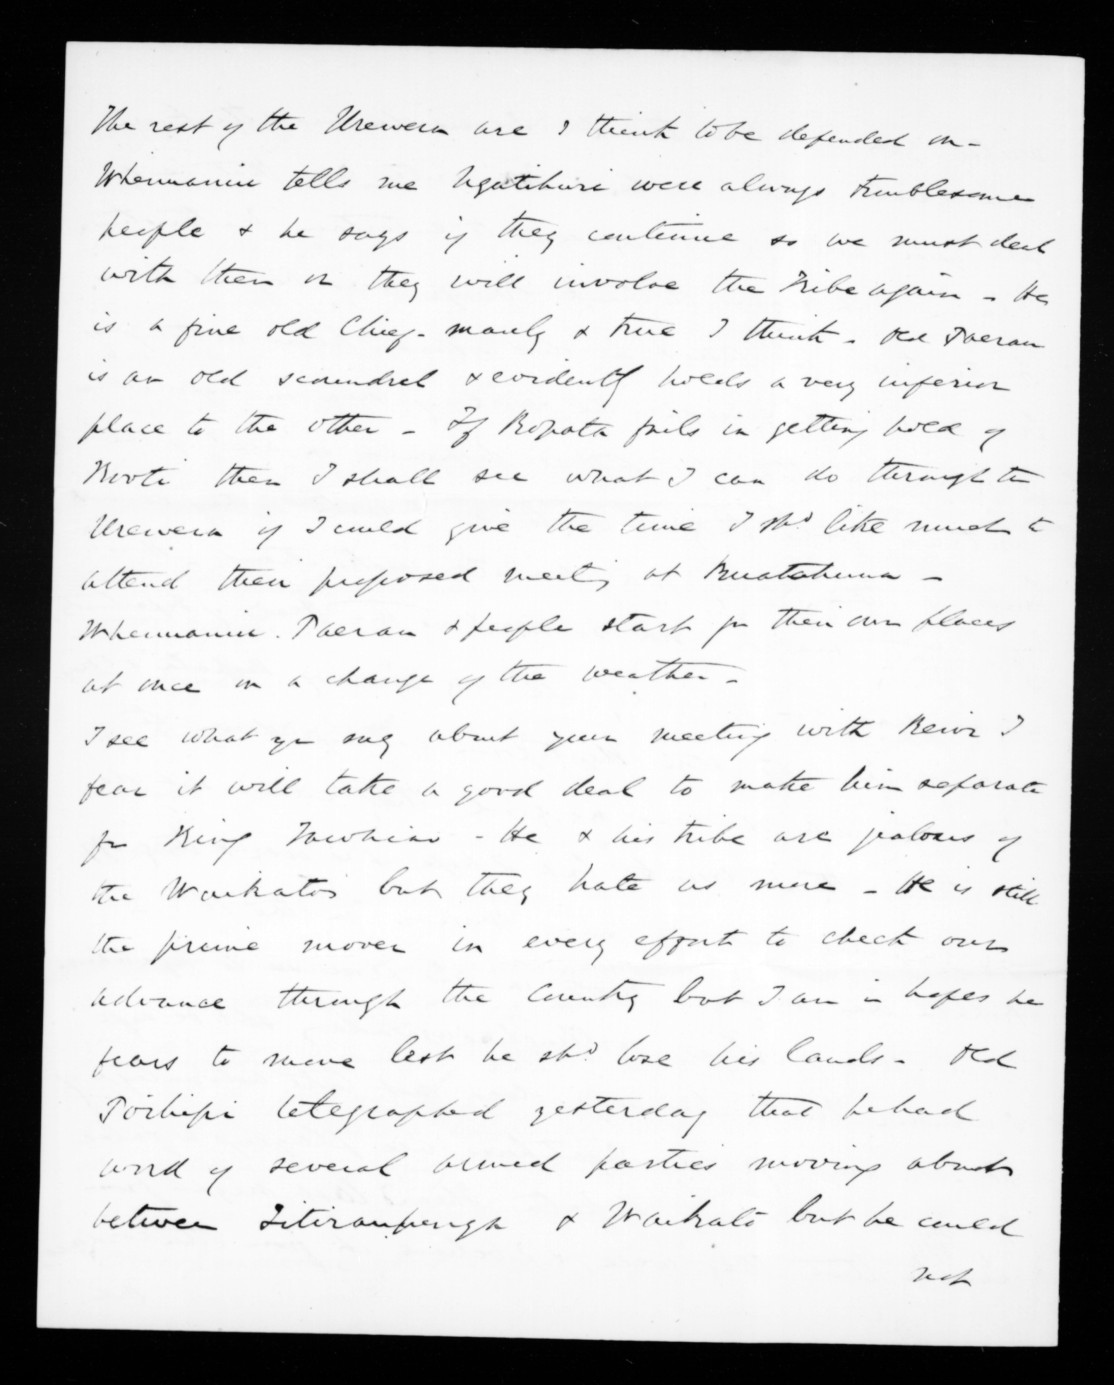 The rest of the Urewera are I think to be depended on -
Whenuanui tells me Ngatihuri were always troublesome
people & he says if they continue so we must deal
with them or they will involve the Tribe again - He
is a fine old Chief - manly & true I think - Old Paerau
is an old scoundrel & evidently holds a very inferior
place to the other - If Ropata fails in getting hold of
Kooti then I shall see what I can do through the
Urewera if I could give the time I shd like much to
attend their proposed meeting at Ruatahuna -
Whenuanui . Paerau & people start for their own places
at once on a change of the weather -
I see what you say about your meeting with Rewi I
fear it will take a good deal to make him separate
fr King Tawhiao - He & his tribe are jealous of
the Waikatos but they hate us more - He is still
the prime mover in every effort to check our
advance through the Country but I am in hopes he
fears to move lest he shd lose his lands - Old
Poihipi telegraphed yesterday that he had
word of several armed parties moving about
between Titiraupenga & Waikato but he could
not